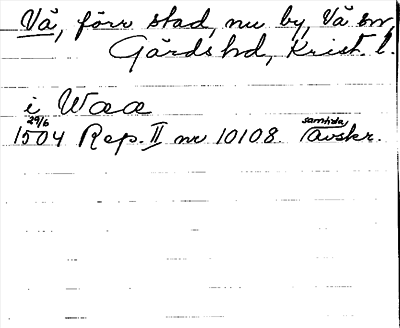 Vä, förr stad, nu by, Vä sn,
Gärds hd, Krist. l.
i Waa
29/6
1504 Rep. II nr 10108. samtida avskr.